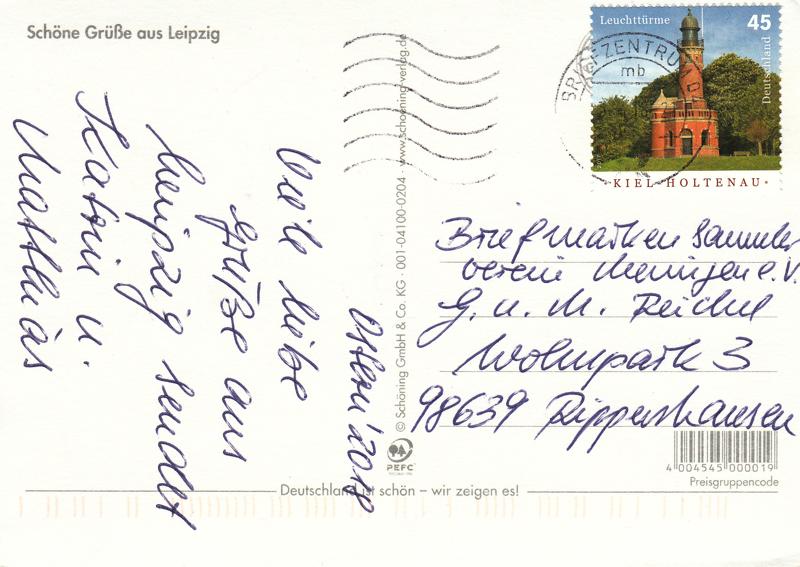 Schöne Grüße aus Leipzig
Ostern '2018
Viele liebe
Grüße aus
Leipzig sendet
Katrin u.
Matthias
© Schöning GmbH & Co. KG · 001-04100-0204 · www.schoening-verlag.de
PEFC
Deutschland ist schön – wir zeigen es!
Leuchttürme
45
Deutschland
KIEL-HOLTENAU
BRIEFZENTRUM
mb
Briefmarken Sammler
verein Meiningen e.V.
G. u. M. Reichel
Wohnpark 3
98639 Rippershausen
4 004545 000019
Preisgruppencode